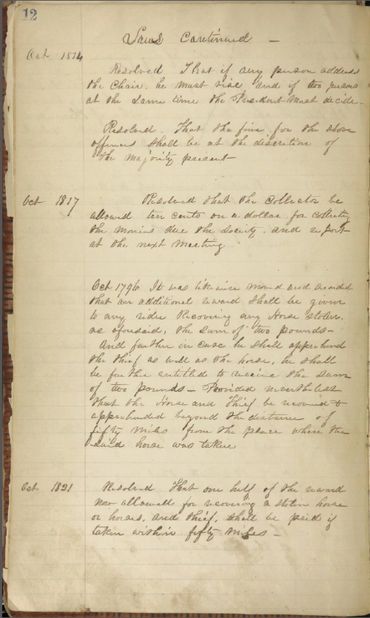 12
Laws Continued —
Oct 1814
Resolved That if any person address
the Chair, he must rise and if two persons
at the same time the President must decide —
Resolved That the fine for the above
offences shall be at the discretion of
the majority present
Oct 1817
Resolved that the Collector be
allowed ten cents on a dollar for collecting
the monies due the Society and report
at the next meeting
Oct 1796 It was likewise moved and
that an additional reward shall be given
to any rider Recovering any Horse stolen
as aforesaid, the sum of two pounds —
And further in case he shall apprehend
the thief as well as the horse, he shall
be further entitled to receive the sum
of two pounds — Provided nevertheless
that the Horse and Thief be
apprehended beyond the distance of
fifty miles from the place where the
said horse was taken
Oct 1821
Resolved That one half of the reward
now allowed for recovering a stolen horse
or horses, and thief, shall be paid if
taken within fifty miles —